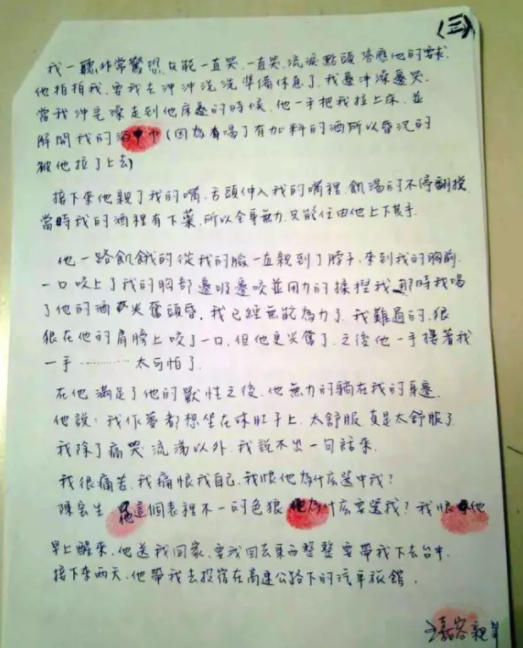 (三)
我一聽非常驚恐,只能一直哭、一直哭,流淚點頭答應他的要求.
他拍拍我,要我去沖沖洗洗準備休息了,我邊沖澡邊哭.
當我沖完澡走到他床邊的時候,他一手把我拉上床,並
解開我的浴巾(因為有喝了有加料的酒所以昏沉的
被他拉了上去)
接下來他親了我的嘴,舌頭伸入我的嘴裡,飢渴的不停翻攪
當時我的酒裡有下葯,所以全身無力,只能任由他上下其手.
他一路飢餓的從我的臉一直親到了脖子,來到我的胸前
一口咬上了我的胸部邊吸邊咬並用力的揉捏我,那時我喝
了他的酒 昏,我已經無能為力了.我難過的,狠
狠在他的肩膀上咬了一口.但他更興奮了.之後他一手 著我
一手 ………… 太可怕了.
在他滿足了他的獸性之後,他無力的躺在我的身邊.
他說:我作夢都想坐在妳肚子上,太舒服真是太舒服了
我除了痛哭流涕以外,我說不出一句話來.
我很痛苦,我痛恨我自己,我恨他為什么選中我?
陳宏生 他這個表裡不一的色狼 他為什么要選我?我恨他
早上醒來,他送我回家,要我回去東西整整要帶我下去台中.
接下來兩天,他帶我去投宿在高速公路下的汽車旅館.
嘉容 親筆